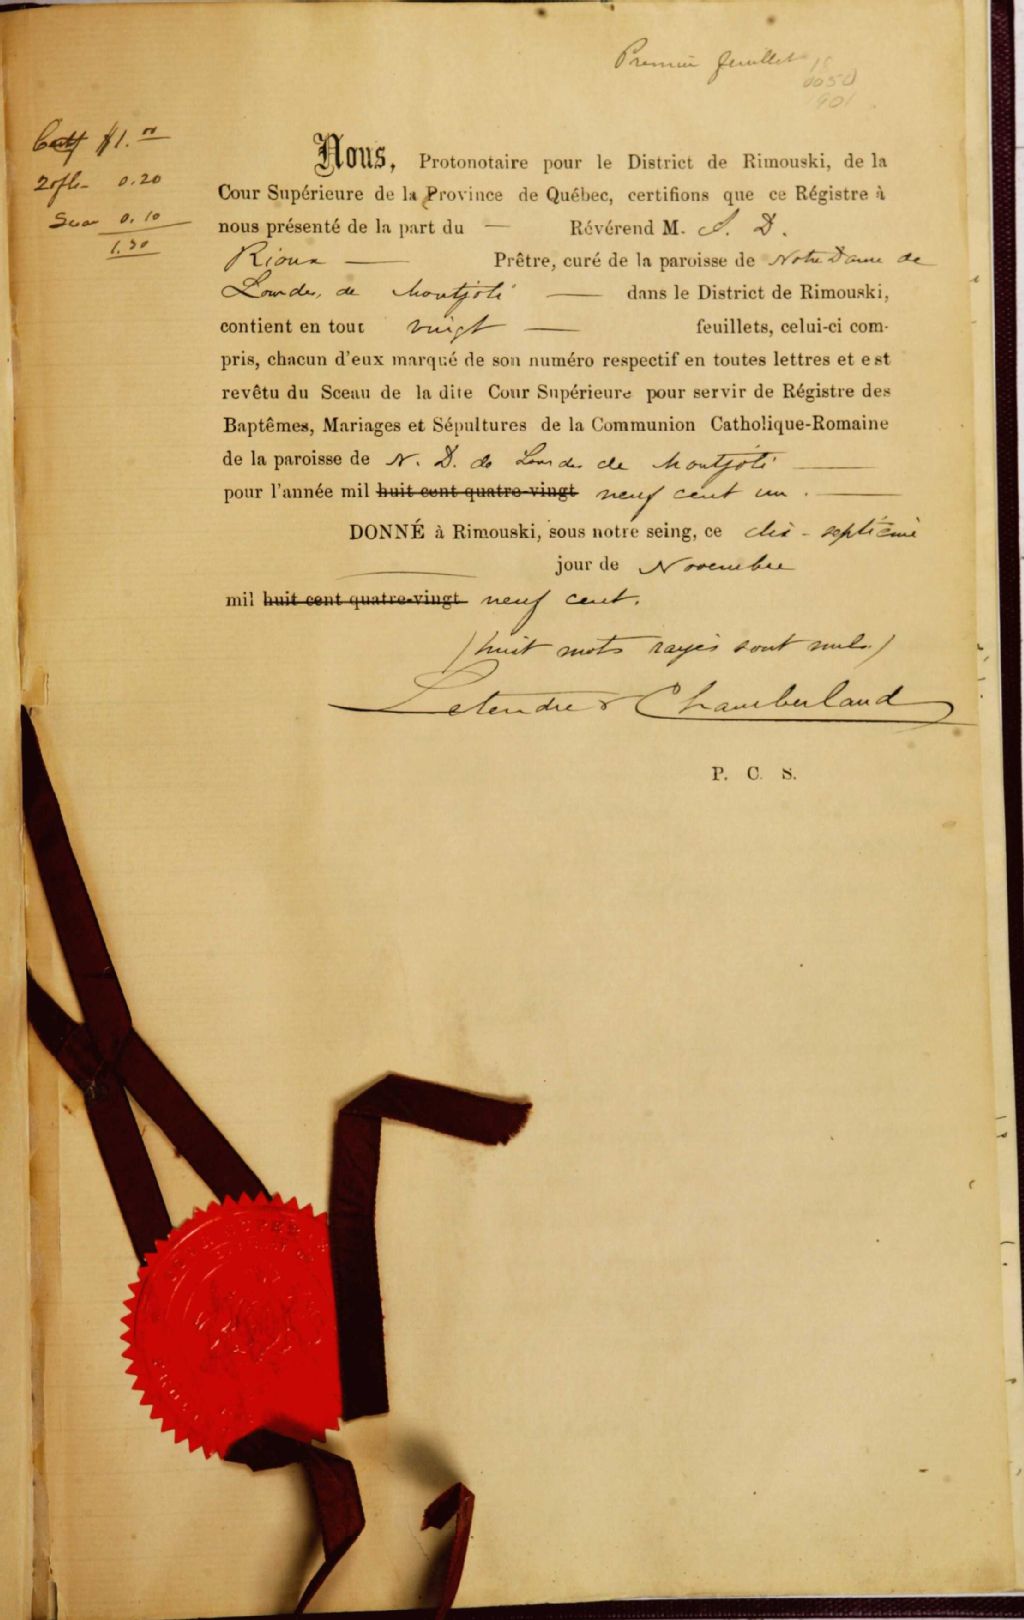 Premier feuillet
18
0050
1901
Certf $1.00
20 fls 0.20
Sceau 0.10
1.30
Nous, Protonotaire pour le District de Rimouski, de la
Cour Supérieure de la Province de Québec, certifions que ce Régistre à
nous présenté de la part du — Révérend M. S. D.
Rioux — Prêtre, curé de la paroisse de Notre Dame de
Lourdes, de Montjoli — dans le District de Rimouski,
contient en tout vingt — feuillets, celui-ci com-
pris, chacun d'eux marqué de son numéro respectif en toutes lettres et est
revêtu du Sceau de la dite Cour Supérieure pour servir de Régistre des
Baptêmes, Mariages et Sépultures de la Communion Catholique-Romaine
de la paroisse de N. D. de Lourdes de Montjoli —
pour l'année mil huit cent quatre-vingt neuf cent un. —
DONNÉ à Rimouski, sous notre seing, ce dix-septième
— jour de Novembre
mil huit cent quatre-vingt neuf cent.
(huit mots rayés sont nuls.)
Letendre & Chamberland
P. C. S.